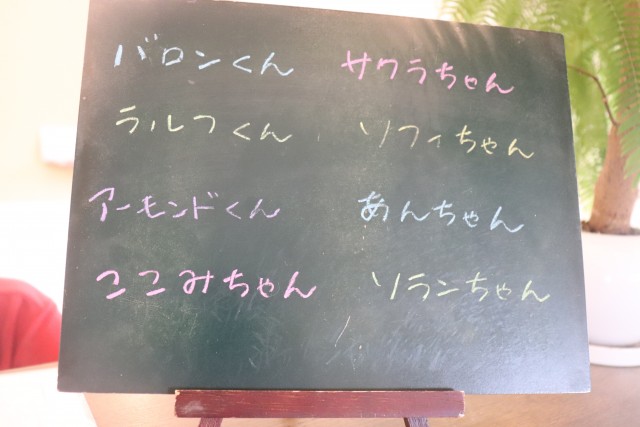 バロンくん サクラちゃん
ラルフくん ソフィちゃん
アーモンドくん あんちゃん
ここみちゃん ソランちゃん